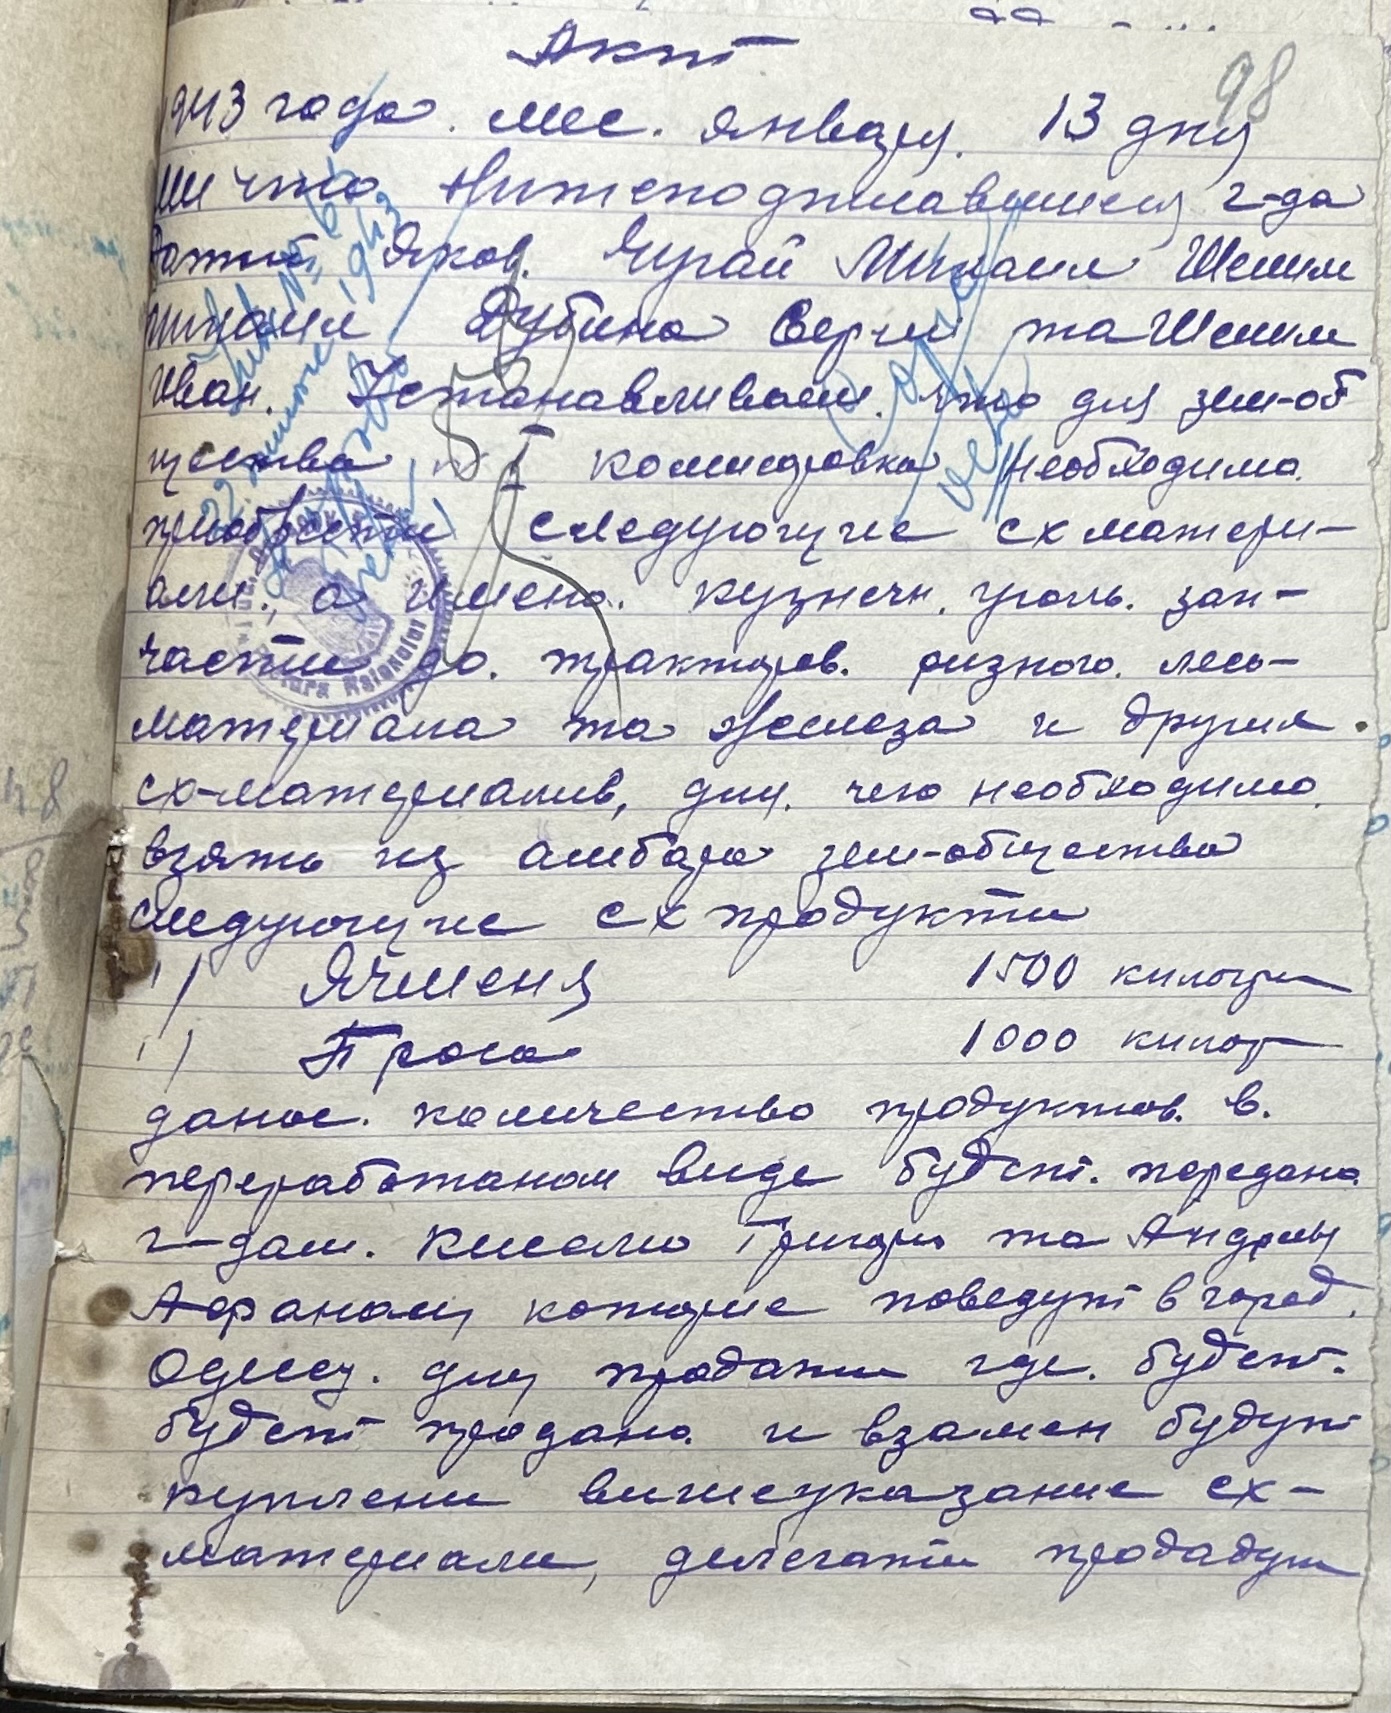 98
Акт
1943 года. мес. января. 13 дня
ми что нижеподписавшиеся г-да
Яков. Чугай Михаил Шелим
Михаил Дубина Сергей та Шелим
Иван. Устанавливаем. что для зем-об
щества I необходимо
приобрести следующие сх матери-
али., а имено. кузнечн. уголь. зап-
части до. тракторов. ризного. лесо-
материала та железа и другие.
сх-материалив, для. чего необходимо
взять из амбара зем-общества
следующие сх продукти
1) Ячменя 1500 килогр
1) Проса 1000 килог
даное. количество продуктов. в.
переработаном виде будет. передано
г-дам. Кисело Григорию та Андрею
которие поведут в город.
Одессу. для продажи где. будет.
будет продано и взамен будут
куплени вишеуказание сх-
материали, делегати продадут